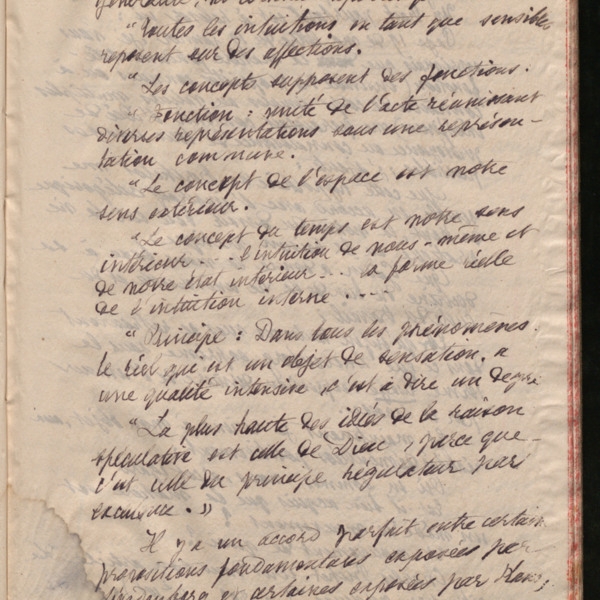 "Toutes les intuitions en tant que sensibles
reposent sur des affections.
"Les concepts supposent des fonctions.
"Fonction : unité de l'acte réunissant
diverses représentations sous une représen-
tation commune.
"Le concept de l'espace est notre
sens extérieur.
"Le concept du temps est notre sens
intérieur ... l'intuition de nous-même et
de notre état intérieur ... la forme réelle
de l'intuition interne ....
"Principe : Dans tous les phénomènes,
le réel qui est un objet de sensation, a
une qualité intensive, c'est à dire un degré
"La plus haute des idées de la raison
spéculative est celle de Dieu, parce que
c'est celle du principe régulateur par
excellence."
Il y a un accord parfait entre certaines
propositions fondamentales exposées par
et certaines exposées par